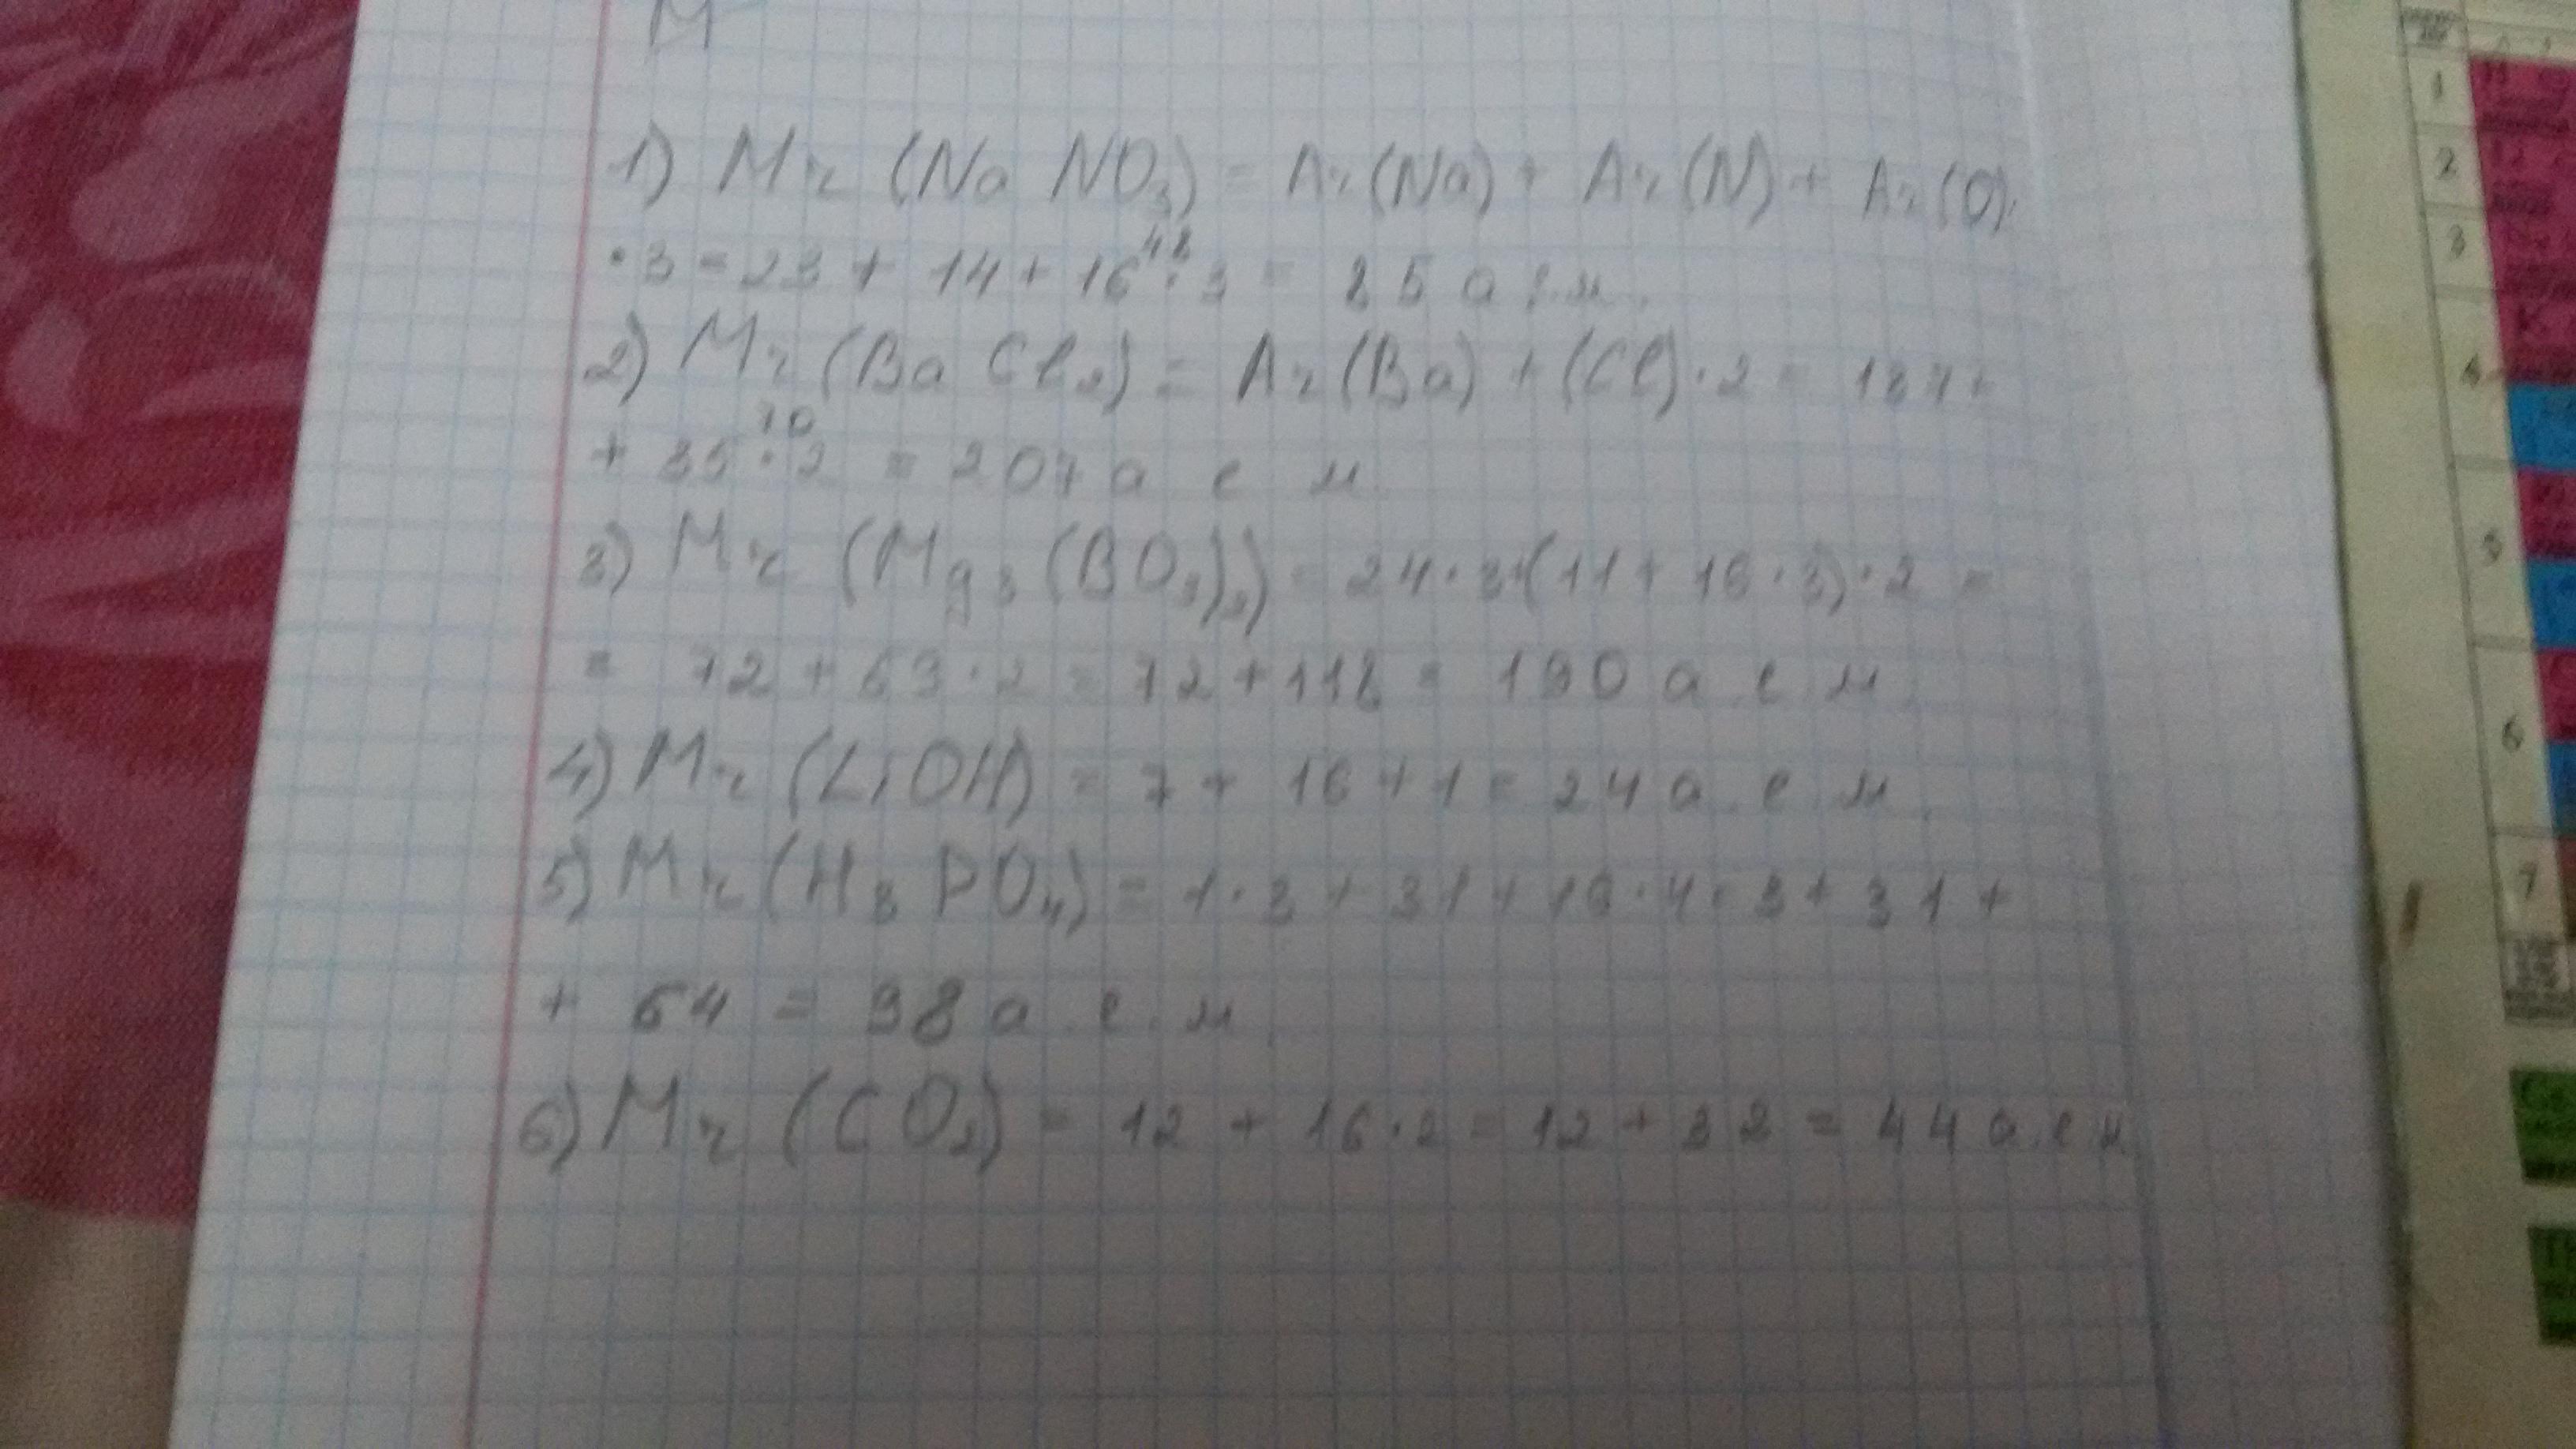 М
1) Mr (Na NO₃) = Ar(Na) + Ar(N) + Ar(O)·
48
·3 = 23 + 14 + 16·3 = 85 а.е.м.
2) Mr (Ba Cl₂) = Ar(Ba) + (Cl)·2 = 137+
70
+ 35·2 = 207 а е м
3) Mr (Mg₃(BO₃)₂) = 24·3+(11+16·3)·2 =
= 72 + 59·2 = 72+118 = 190 а.е.м.
4) Mr (LiOH) = 7 + 16 + 1 = 24 а.е.м.
5) Mr (H₃PO₄) = 1·3 + 31 + 16·4 = 3 + 31 +
+ 64 = 98 а.е.м
6) Mr (CO₂) = 12 + 16·2 = 12 + 32 = 44 а.е.м
1
2
3
4
5
6
7